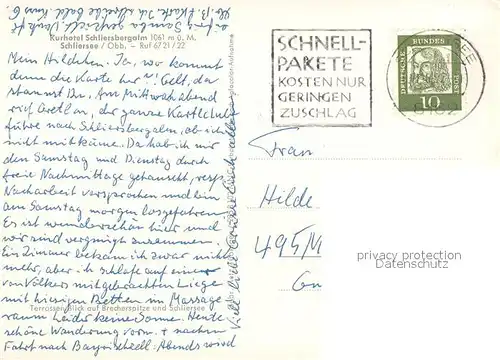 Kurhotel Schliersbergalm 1061 m ü. M.
Schliersee / Obb. - Ruf 67 21 / 22
Mein Hildchen. Ja, wo kommt
denn die Karte her? Gelt, da
staunst Du. Am Mittwoch abend
rief Gretl an, der ganze Kartlclub
führe nach Schliersbergalm, ob ich
nicht mitkäme. Da hab ich mir
den Samstag und Dienstag durch
freie Nachmittage getauscht, resp.
Nacharbeit versprochen und bin
am Samstag morgen losgefahren.
Es ist wunderschön hier und
wir sind vergnügt zusammen.
Ein Zimmer bekam ich zwar nicht
mehr, aber ich schlafe auf einer
von Völkers mitgebrachten Liege
mit hiesigen Betten im Massage
raum. Leider keine Sonne. Heute
schöne Wanderung vorm. + nachm.
Fahrt nach Bayrischzell. Abends wird
Terrassenblick auf Brecherspitze und Schliersee
SCHNELL-
PAKETE
KOSTEN NUR
GERINGEN
ZUSCHLAG
DEUTSCHE BUNDESPOST
10
Frau
Hilde
495/M
privacy protection
Datenschutz